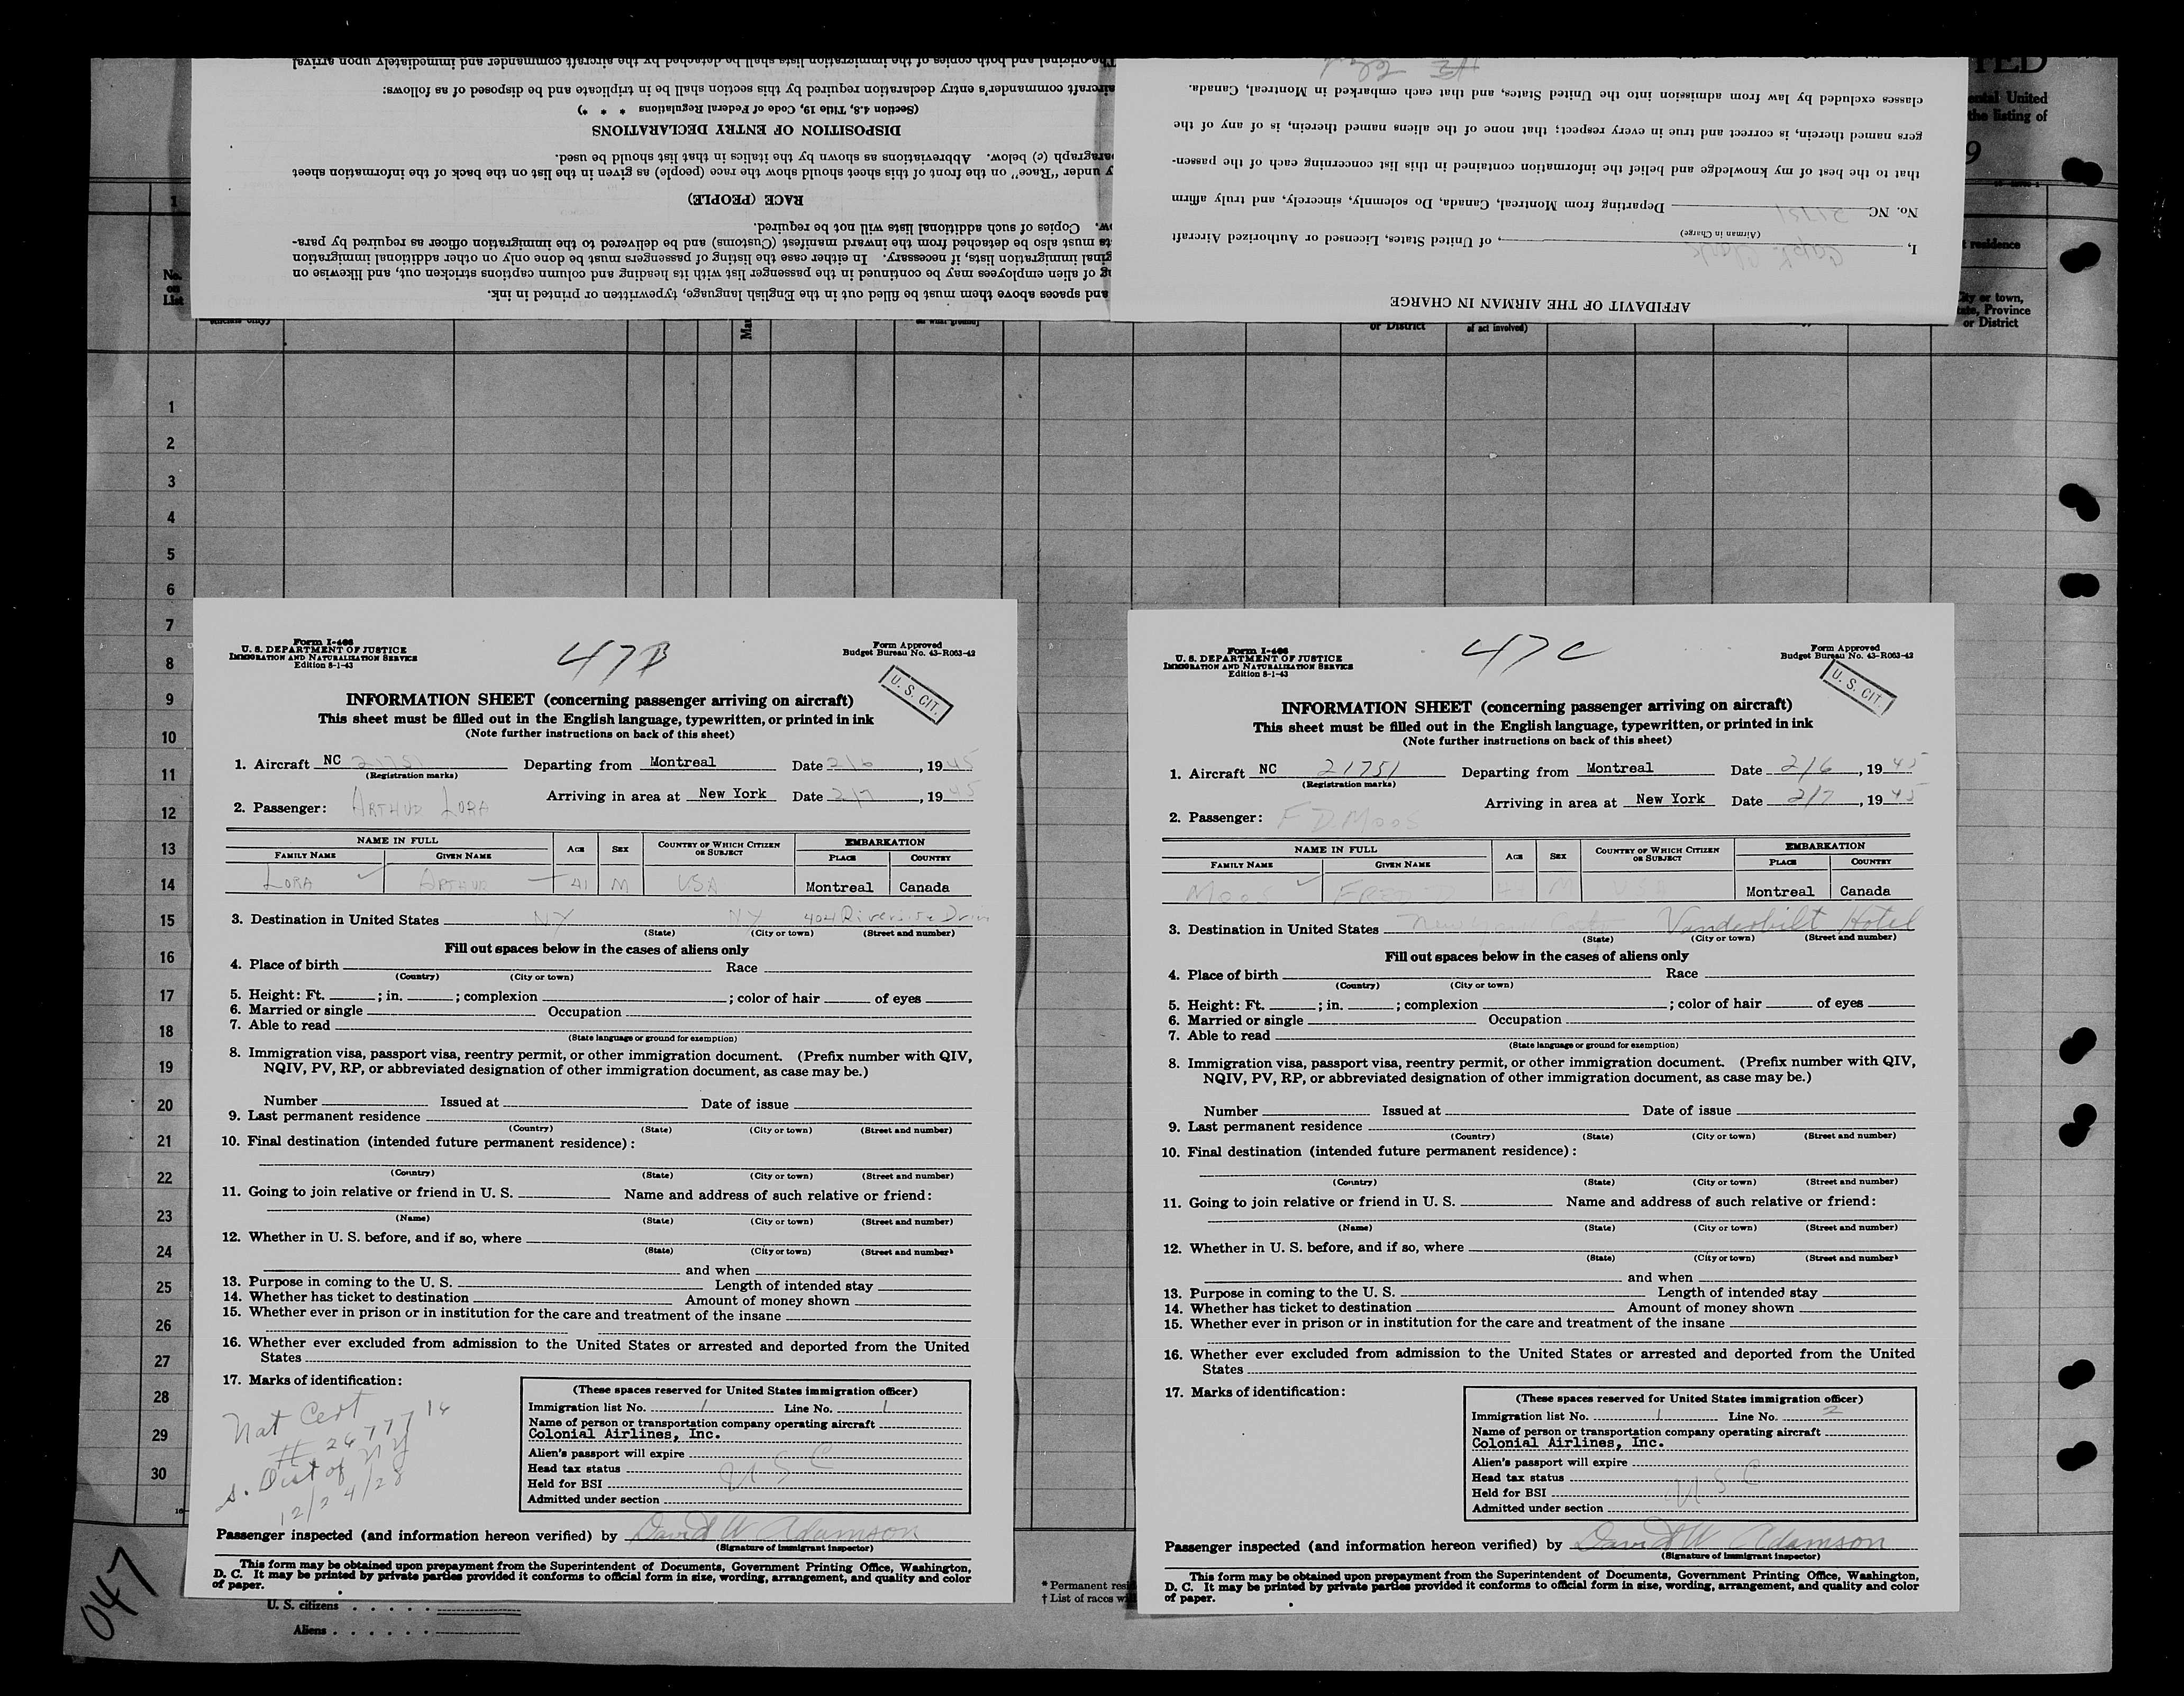 The original and both copies of the immigration lists shall be detached by the aircraft commander and immediately upon arrival
aircraft commander's entry declaration required by this section shall be in triplicate and be disposed of as follows:
(Section 4.8, Title 19, Code of Federal Regulations * * *)
DISPOSITION OF ENTRY DECLARATIONS
paragraph (c) below. Abbreviations as shown by the italics in that list should be used.
y under "Race" on the front of this sheet should show the race (people) as given in the list on the back of the information sheet
RACE (PEOPLE)
w. Copies of such additional lists will not be required.
ts must also be detached from the inward manifest (Customs) and be delivered to the immigration officer as required by para-
ginal immigration lists, if necessary. In either case the listing of passengers must be done only on other additional immigration
g of alien employees may be continued in the passenger list with its heading and column captions stricken out, and likewise on
and spaces above them must be filled out in the English language, typewritten or printed in ink.
AFFIDAVIT OF THE AIRMAN IN CHARGE
I, Capt. Clark, of United States, Licensed or Authorized Aircraft
(Airman in Charge)
No. NC 21751 Departing from Montreal, Canada, Do solemnly, sincerely, and truly affirm
that to the best of my knowledge and belief the information contained in this list concerning each of the passen-
gers named therein, is correct and true in every respect; that none of the aliens named therein, is of any of the
classes excluded by law from admission into the United States, and that each embarked in Montreal, Canada.
TED
ental United
the listing of
9
1
t residence
No.
on
List
City or town,
ate, Province
or District
officials only)
or District
of act involved)
1
2
3
4
5
6
7
8
9
10
11
12
13
14
15
16
17
18
19
20
21
22
23
24
25
26
27
28
29
30
Form I-466
U. S. DEPARTMENT OF JUSTICE
IMMIGRATION AND NATURALIZATION SERVICE
Edition 8-1-43
47B
Form Approved
Budget Bureau No. 43-R063-42
U. S. CIT.
INFORMATION SHEET (concerning passenger arriving on aircraft)
This sheet must be filled out in the English language, typewritten, or printed in ink
(Note further instructions on back of this sheet)
1. Aircraft NC 21751 Departing from Montreal Date 2/6, 1945
(Registration marks)
Arriving in area at New York Date 2/7, 1945
2. Passenger: ARTHUR LORA
NAME IN FULL AGE SEX COUNTRY OF WHICH CITIZEN OR SUBJECT EMBARKATION
FAMILY NAME GIVEN NAME PLACE COUNTRY
LORA ARTHUR 41 M USA Montreal Canada
3. Destination in United States NY NY 404 Riverside Drive
(State) (City or town) (Street and number)
Fill out spaces below in the cases of aliens only
4. Place of birth Race
(Country) (City or town)
5. Height: Ft. ; in. ; complexion ; color of hair of eyes
6. Married or single Occupation
7. Able to read
(State language or ground for exemption)
8. Immigration visa, passport visa, reentry permit, or other immigration document. (Prefix number with QIV,
NQIV, PV, RP, or abbreviated designation of other immigration document, as case may be.)
Number Issued at Date of issue
9. Last permanent residence
(Country) (State) (City or town) (Street and number)
10. Final destination (intended future permanent residence):
(Country) (State) (City or town) (Street and number)
11. Going to join relative or friend in U. S. Name and address of such relative or friend:
(Name) (State) (City or town) (Street and number)
12. Whether in U. S. before, and if so, where
(State) (City or town) (Street and number)
and when
13. Purpose in coming to the U. S. Length of intended stay
14. Whether has ticket to destination Amount of money shown
15. Whether ever in prison or in institution for the care and treatment of the insane
16. Whether ever excluded from admission to the United States or arrested and deported from the United
States
17. Marks of identification:
Nat Cert
# 2677716
S. Dist of NY
12/24/28
(These spaces reserved for United States immigration officer)
Immigration list No. 1 Line No. 1
Name of person or transportation company operating aircraft
Colonial Airlines, Inc.
Alien's passport will expire
Head tax status U S C
Held for BSI
Admitted under section
Passenger inspected (and information hereon verified) by David W Adamson
(Signature of immigrant inspector)
This form may be obtained upon prepayment from the Superintendent of Documents, Government Printing Office, Washington,
D. C. It may be printed by private parties provided it conforms to official form in size, wording, arrangement, and quality and color
of paper.
Form I-466
U. S. DEPARTMENT OF JUSTICE
IMMIGRATION AND NATURALIZATION SERVICE
Edition 8-1-43
47C
Form Approved
Budget Bureau No. 43-R063-42
U. S. CIT.
INFORMATION SHEET (concerning passenger arriving on aircraft)
This sheet must be filled out in the English language, typewritten, or printed in ink
(Note further instructions on back of this sheet)
1. Aircraft NC 21751 Departing from Montreal Date 2/6, 1945
(Registration marks)
Arriving in area at New York Date 2/7, 1945
2. Passenger: F D MOOS
NAME IN FULL AGE SEX COUNTRY OF WHICH CITIZEN OR SUBJECT EMBARKATION
FAMILY NAME GIVEN NAME PLACE COUNTRY
MOOS FRED D M USA Montreal Canada
3. Destination in United States New York Vanderbilt Hotel
(State) (City or town) (Street and number)
Fill out spaces below in the cases of aliens only
4. Place of birth Race
(Country) (City or town)
5. Height: Ft. ; in. ; complexion ; color of hair of eyes
6. Married or single Occupation
7. Able to read
(State language or ground for exemption)
8. Immigration visa, passport visa, reentry permit, or other immigration document. (Prefix number with QIV,
NQIV, PV, RP, or abbreviated designation of other immigration document, as case may be.)
Number Issued at Date of issue
9. Last permanent residence
(Country) (State) (City or town) (Street and number)
10. Final destination (intended future permanent residence):
(Country) (State) (City or town) (Street and number)
11. Going to join relative or friend in U. S. Name and address of such relative or friend:
(Name) (State) (City or town) (Street and number)
12. Whether in U. S. before, and if so, where
(State) (City or town) (Street and number)
and when
13. Purpose in coming to the U. S. Length of intended stay
14. Whether has ticket to destination Amount of money shown
15. Whether ever in prison or in institution for the care and treatment of the insane
16. Whether ever excluded from admission to the United States or arrested and deported from the United
States
17. Marks of identification:
(These spaces reserved for United States immigration officer)
Immigration list No. 1 Line No. 2
Name of person or transportation company operating aircraft
Colonial Airlines, Inc.
Alien's passport will expire
Head tax status U S C
Held for BSI
Admitted under section
Passenger inspected (and information hereon verified) by David W Adamson
(Signature of immigrant inspector)
This form may be obtained upon prepayment from the Superintendent of Documents, Government Printing Office, Washington,
D. C. It may be printed by private parties provided it conforms to official form in size, wording, arrangement, and quality and color
of paper.
047
U. S. citizens
Aliens
* Permanent resi
† List of races wi